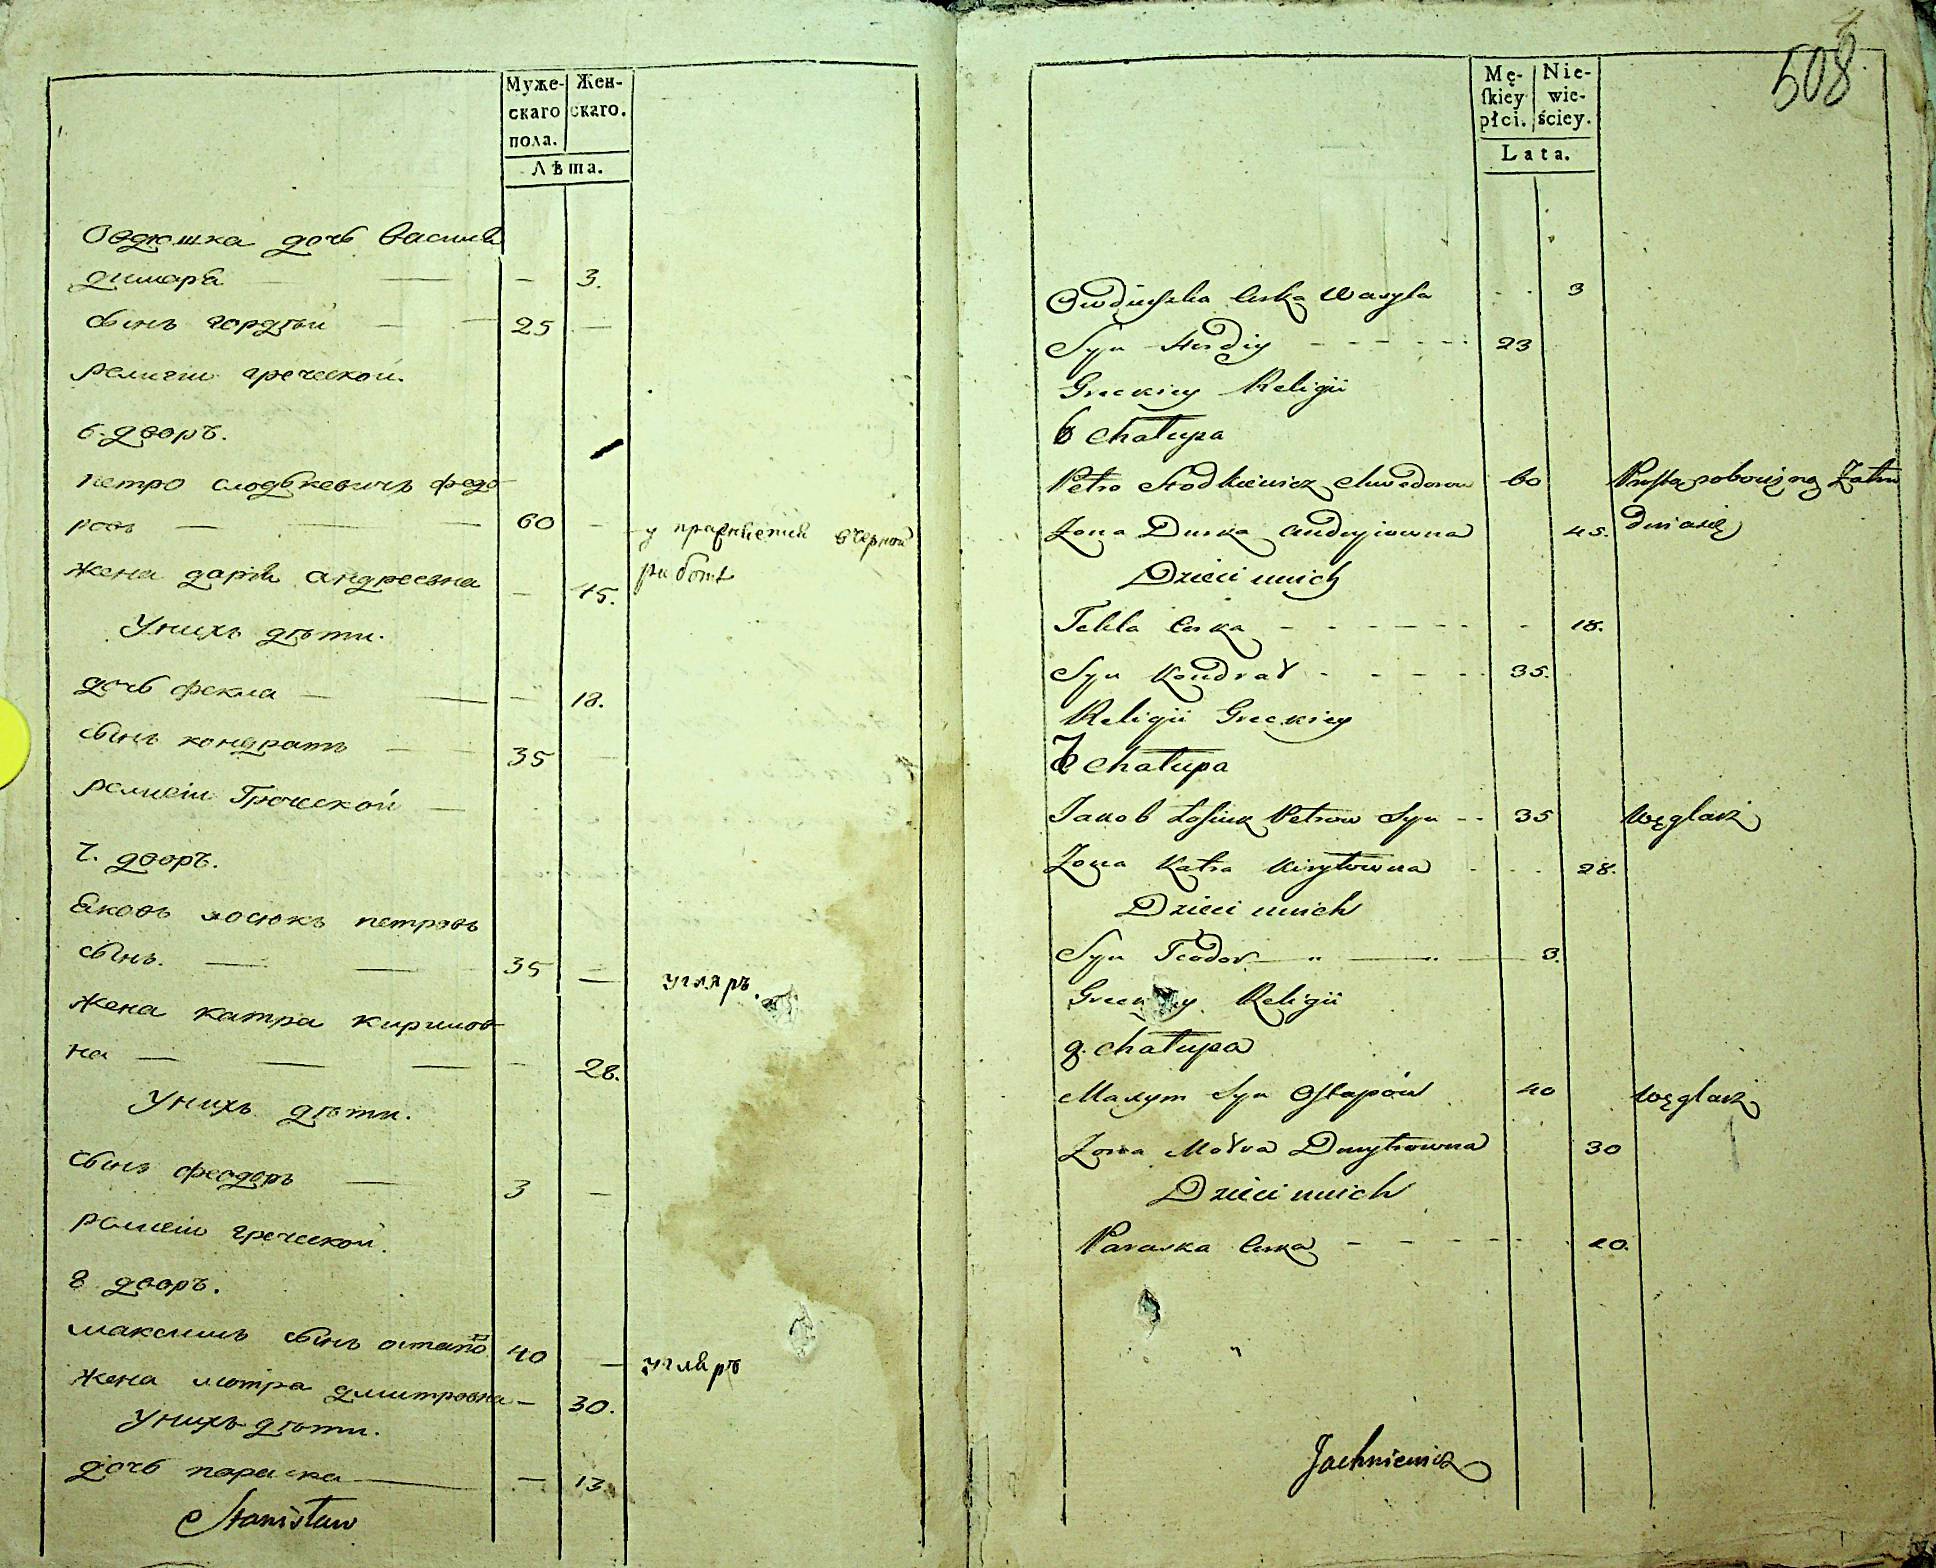 Муже-
скаго
пола.
Жен-
скаго.
Лѣта.
Овдюшка дочь василя
димара — — 3.
сынъ гордѣй — — 25 —
религіи греческой.
6. дворъ.
петро слодькевичъ федо
ровъ — — — 60 —
у працы
работѣ
жена дарія андреевна — 45.
У нихъ дѣти.
дочь фекла — — — 18.
сынъ кондратъ — — 35 —
религіи Греческой —
7. дворъ.
Яковъ лосюкъ петровъ
сынъ. — — 35 — угляръ.
жена катра кирилов
на — — — — 28.
У нихъ дѣти.
сынъ феодоръ — 3 —
религіи греческой.
8 дворъ.
максимъ сынъ остапо 40 — угляръ
жена мотра дмитровна — 30.
У нихъ дѣти.
дочь параска — — 13.
Stanisław
508
Mę-
skiey
płci.
Nie-
wie-
ściey.
Lata.
Owdiuszka Curka Wasyla - - 3
Syn Hordiy - - - - - - 23
Greckiey Religii
6 Chałupa
Petro Słodkiewicz Chwedorow 60
Zona Durka Andryiowna 45.
Dzieci u nich
Tekla Curka - - - - - - - 18.
Syn Kondrat - - - - - 35.
Religii Greckiey
7 Chałupa
Jakob Łosiuk Petrow Syn - - 35 Węglarz
Zona Katra Kiryłowna - - - 28.
Dzieci u nich
Syn Teodor — " — " — 3.
Greckiey Religii
8. Chałupa
Maxym Syn Ostapów 40 Węglarz
Zona Motra Dmytrowna 30
Dzieci u nich
Paraska Curka - - - - - - 10.
Jachniewicz